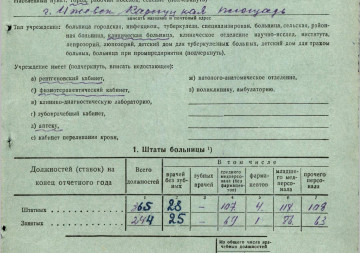 г. Ижевск, Карлутская площадь
Тип учреждения: больница городская, инфекционная, туберкулезная, специализированная, больница, сельская, район-
ная больница, клиническая больница, клиническое отделение научно-исслед. института,
лепрозорий, зооюзолятор, детский дом для туберкулезных больных, детский дом для трахом
больных, больница при промпредприятии (подчеркнуть).
Учреждение имеет (подчеркнуть, вписать недостающее):
а) рентгеновский кабинет,
б) физиотерапевтический кабинет,
в) клинико-диагностическую лабораторию,
г) зубоврачебный кабинет,
д) аптеку,
е) кабинет переливания крови,
ж) патолого-анатомическое отделение,
з) поликлинику, амбулаторию.
1. Штаты больницы ¹)
Должностей (ставок) на конец отчетного года
Всего должностей
В том числе
врачей без зубных
зубных врачей
среднего медперсо-
нала (без фармацевтов)
фарма-
цевтов
младшего медпер-
сонала
прочего персонала
Штатных 365 28 — 107 4 118 108
Занятых 244 25 — 69 1 86 63
Из общего числа вра-
чебных должностей